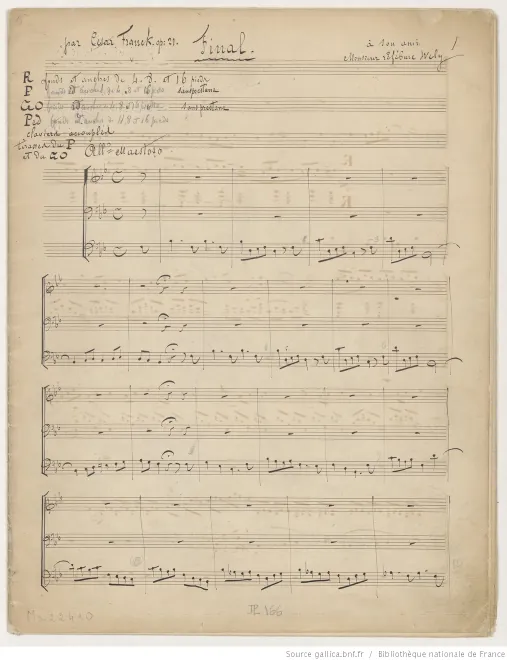 par César Franck. op: 21. Final. à son ami
Monsieur Lefébure Wely 1
R fonds et anches de 4. 8. et 16 pieds
P fonds et anches de 4. 8 et 16 pieds sans
GO fonds 4. 8 et 16 pieds sans
Péd fonds 4 8 et 16 pieds
claviers accouplés
tirasses du P
et du GO All° Maestoso.
JP 166
Source gallica.bnf.fr / Bibliothèque nationale de France